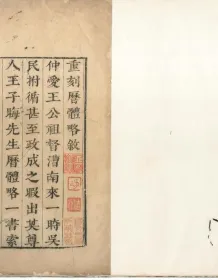 重刻曆體略敘
仲愛王公祖督漕南來一時吳
民拊循甚至政成之暇出其尊
人王子晦先生曆體略一書索